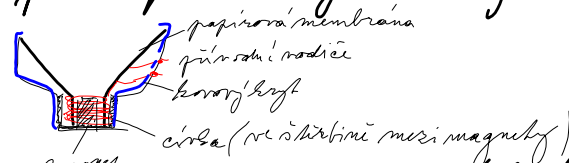 papírová membrána
přívodní vodiče
kovový kryt
cívka (ve štěrbině mezi magnety)